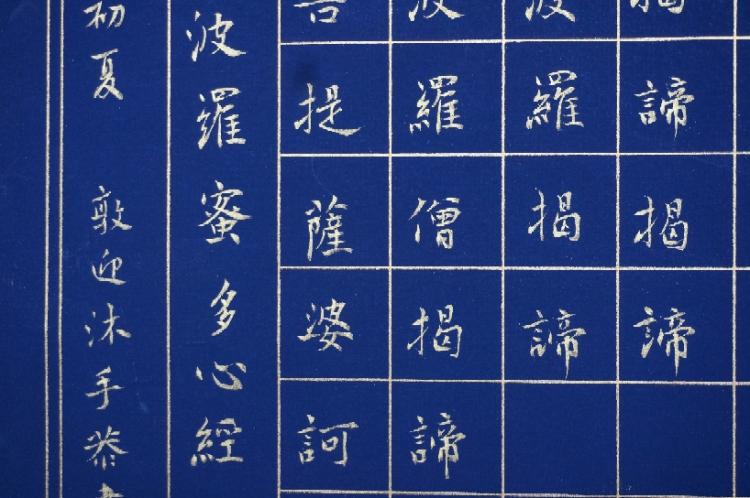 揭諦揭諦
波羅揭諦
波羅僧揭諦
菩提薩婆訶
波羅蜜多心經
初夏 敦迎沐手恭